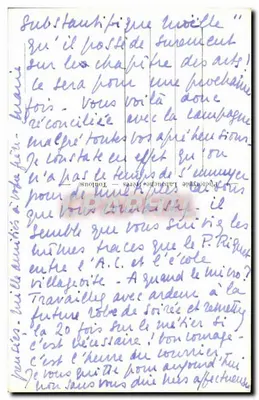 Substantifique moëlle"
qu'il possède surement
sur le chapitre des arts!
ce sera pour une prochaine
fois - Vous voilà donc
réconciliée avec la campagne
malgré toutes vos apréhensions.
Je constate en effet qu'on
n'a pas le temps de s'ennuyer
pour de
que vous il
semble que vous suiviez les
mêmes traces que le P.
entre l'A.C. et l'école
villageoise - A quand le micro?
Travaillez avec ardeur à la
future robe de soirée et remettez
la 20 fois sur le métier si
c'est nécessaire! bon courage -
c'est l'heure du courrier.
Je vous quitte pour aujourd'hui
non sans vous dire mes affectueuses
Mille amitiés à votre frère - Marie
Toulouse